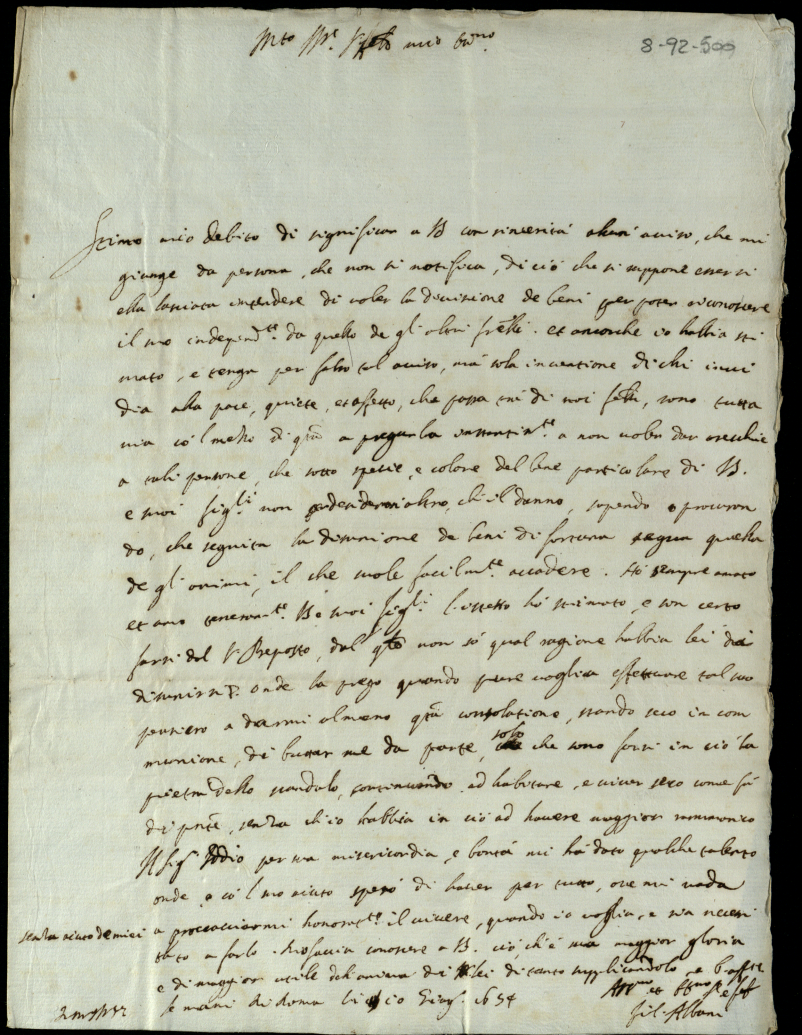 8-92-500
Mto Ill.e Sig.r fr̃ello mio oss.mo
Stimo mio debito di significar a VS con sincerità alcun aviso, che mi
giunge da persona, che non si notifica, di ciò che si suppone essersi
ella lasciata intendere di voler la divisione de beni per poter riconoscere
il suo independ.te da quello de gli altri frẽlli. et ancorche io habbia sti
mato, e tenga per falso tal aviso, ma sola inventione di chi invi
dia alla pace, quiete, et affetto, che passa trà di noi frẽlli, sono tutta
via cò'l mezzo di q̃ta a pregarla instantem.te a non voler dar orecchie
a tali persone, che sotto spetie, e colore del bene particolare di VS.
e suoi figli non desideran altro, ch'il danno, sapendo e procuran
do, che seguita la disunione de beni di fortuna segua quella
de gli animi, il che suole facilm.te accadere. Hò sempre amato
et amo teneram.te VS e suoi figli. l'istesso hò stimato, e son certo
farsi dal S.r Preposto, dal q̃le non sò qual ragione habbia lei di
disunirsi. onde la prego quando pure voglia effettuare tal suo
pensiero a darmi almeno q̃ta consolatione, stando seco in com
munione, di buttar me da parte, solo che sono forsi in ciò la
pietra dello scandalo, continuando ad habitare, e viver seco come fà
di p̃nte, senza ch'io habbia in ciò ad havere maggior rammarico
Il Sig.r Iddio per sua misericordia, e bontà mi hà dato qualche talento
onde, e cò'l suo aiuto spero di haver per tutto, ove mi vada
a procacciarmi honorat.te il vivere, quando io voglia, e sia necessi
senza aiuto de miei
tato a farlo. Mi faccia conoscere a VS. ciò, ch'è sua maggior gloria
e di maggior utile dell'anima di lei di tanto supplicandolo, e b
le mani di Roma li 10 Giug. 1654
et fr̃ello
fil. Albani